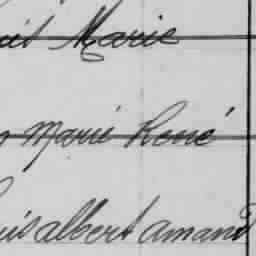 Marie
Marie René
albert amand